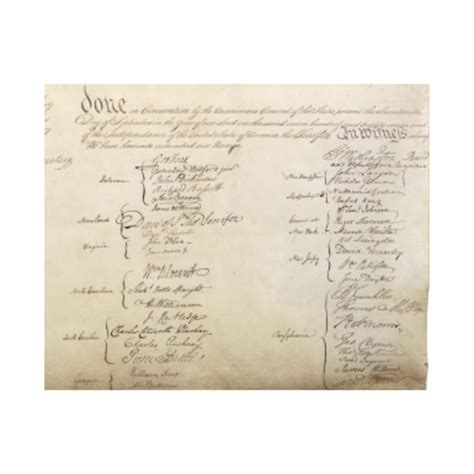 done in Convention by the Unanimous Consent of the States present the Seventeenth
Day of September in the Year of our Lord one thousand seven hundred and Eighty seven
of the Independance of the United States of America the Twelfth In witness whereof
We have hereunto subscribed our Names,
Delaware
Geo Read
Gunning Bedford jun
John Dickinson
Richard Bassett
Maryland
Dan of St Thos Jenifer
Dan Carroll
Virginia
John Blair
North Carolina
Wm Blount
Richd Dobbs Spaight
Hu Williamson
South Carolina
J. Rutledge
Charles Cotesworth Pinckney
Charles Pinckney
Pierce Butler
Georgia
William Few
Go Washington
New Hampshire
John Langdon
Nicholas Gilman
Massachusetts
Nathaniel Gorham
Rufus King
Connecticut
Wm Saml Johnson
Roger Sherman
New York
Wil Livingston
New Jersey
David Brearley
Wm Paterson
Jona Dayton
Pensylvania
B Franklin
Thomas Mifflin
Robt Morris
Geo Clymer
Thos FitzSimons
Jared Ingersoll
James Wilson